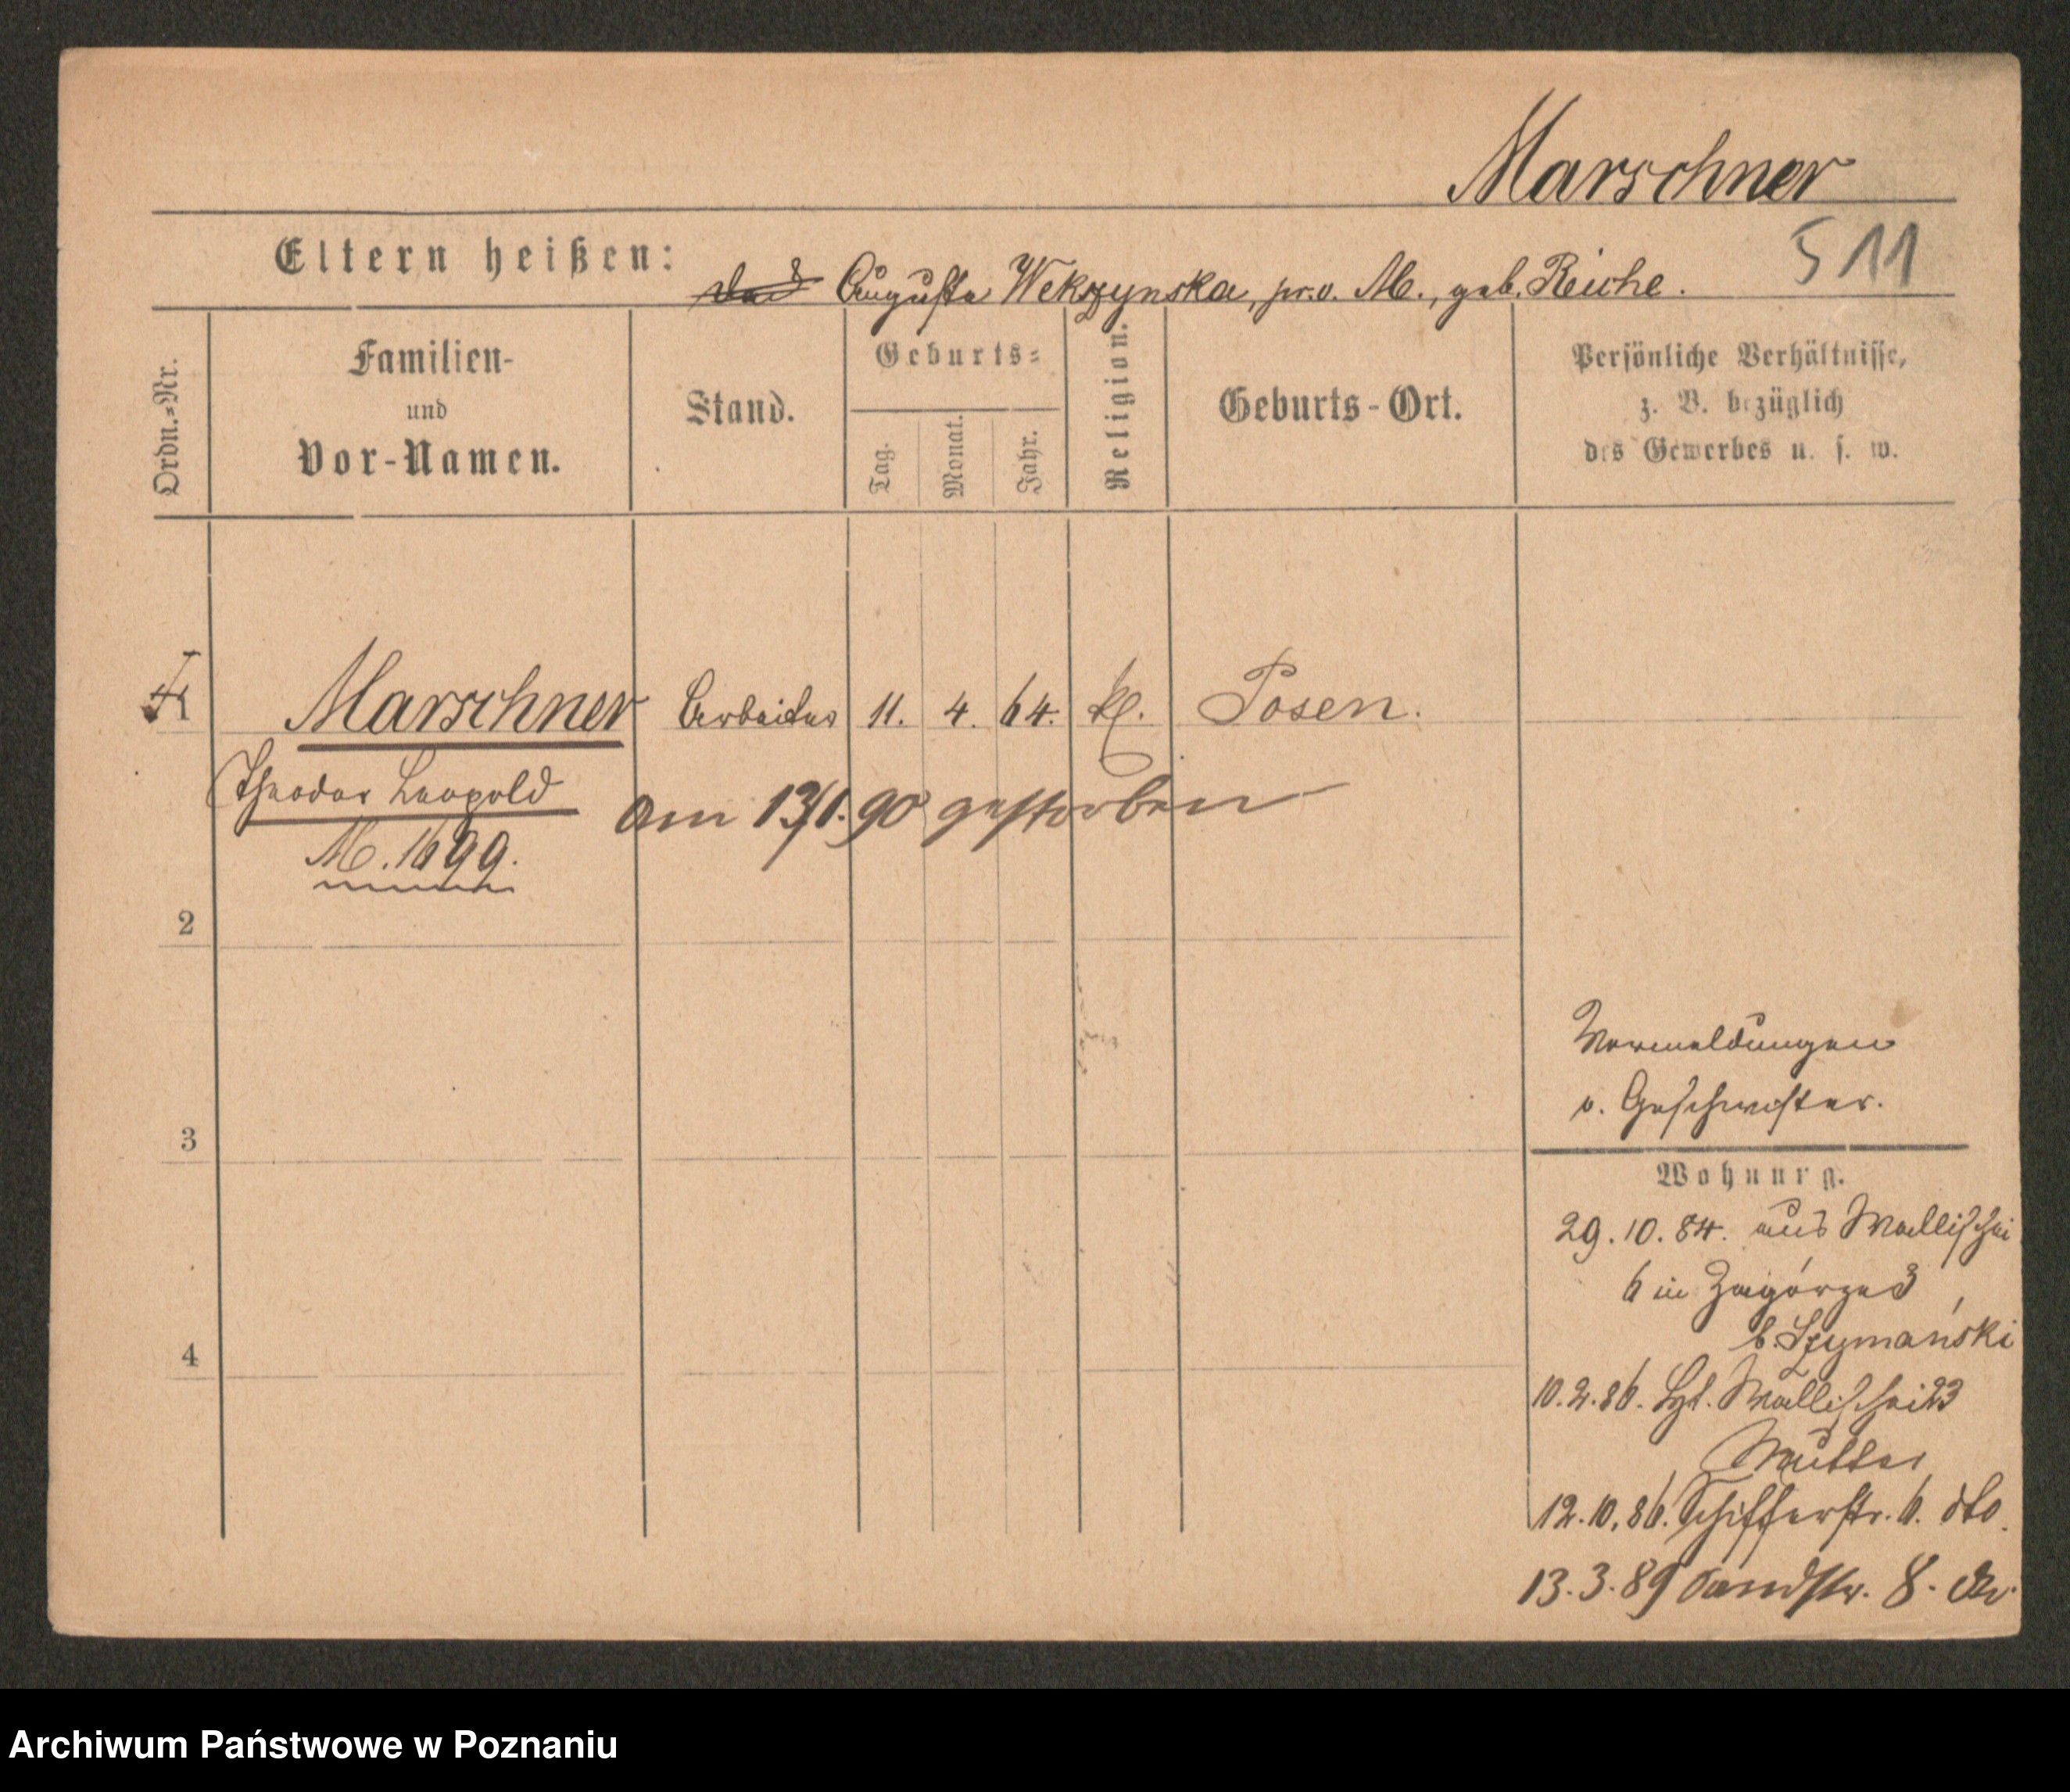 Marschner
511
Eltern heißen: Auguste Wekzynska, pr. v. M., geb. Reiche.
Ordn.-Nr.
Familien-
und
Vor-Namen.
Stand.
Geburts-
Tag.
Monat.
Jahr.
Religion.
Geburts-Ort.
Persönliche Verhältnisse,
z. B. bezüglich
des Gewerbes u. s. w.
1 Marschner Arbeiter 11. 4. 64. Posen.
Theodor Leopold
am 13/1. 90 gestorben
M. 1699.
2
3
4
Vormeldungen
v. Geschwister.
Wohnung.
29. 10. 84. aus Wallischei
6 in Zagórze 3
b. Szymański
10. 2. 86. Wallischei 23
Mutter
12. 10. 86. Schifferstr. 6. dto.
13. 3. 89 Sandstr. 8.
Archiwum Państwowe w Poznaniu